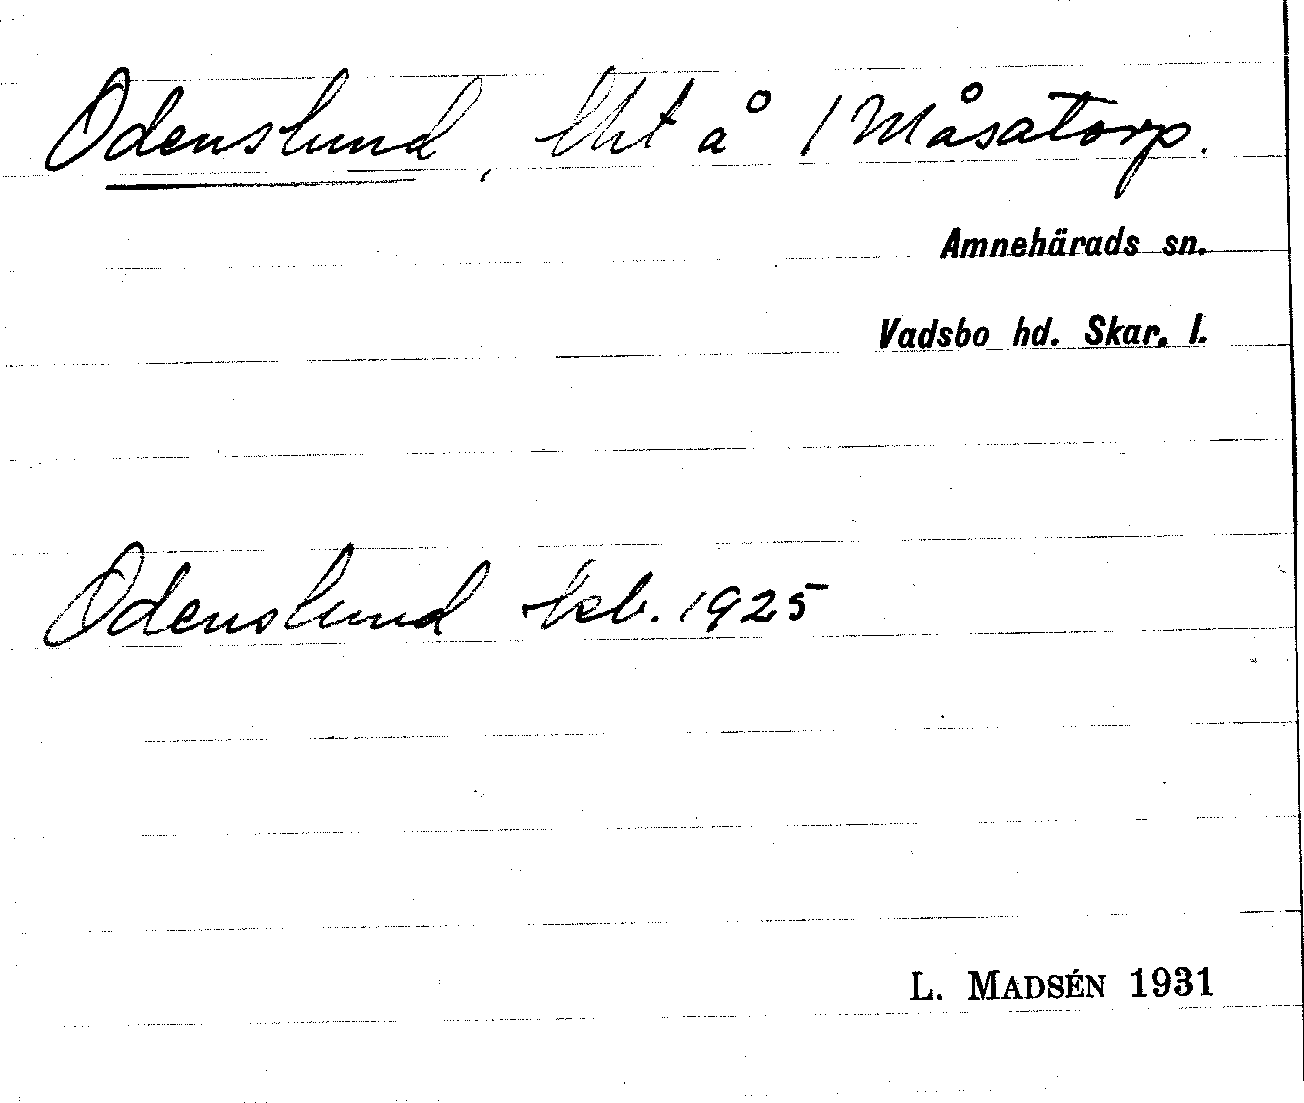 Odenslund, lht å 1 Måsatorp.
Amnehärads sn.
Vadsbo hd. Skar. l.
Odenslund kb. 1925
L. MADSÉN 1931